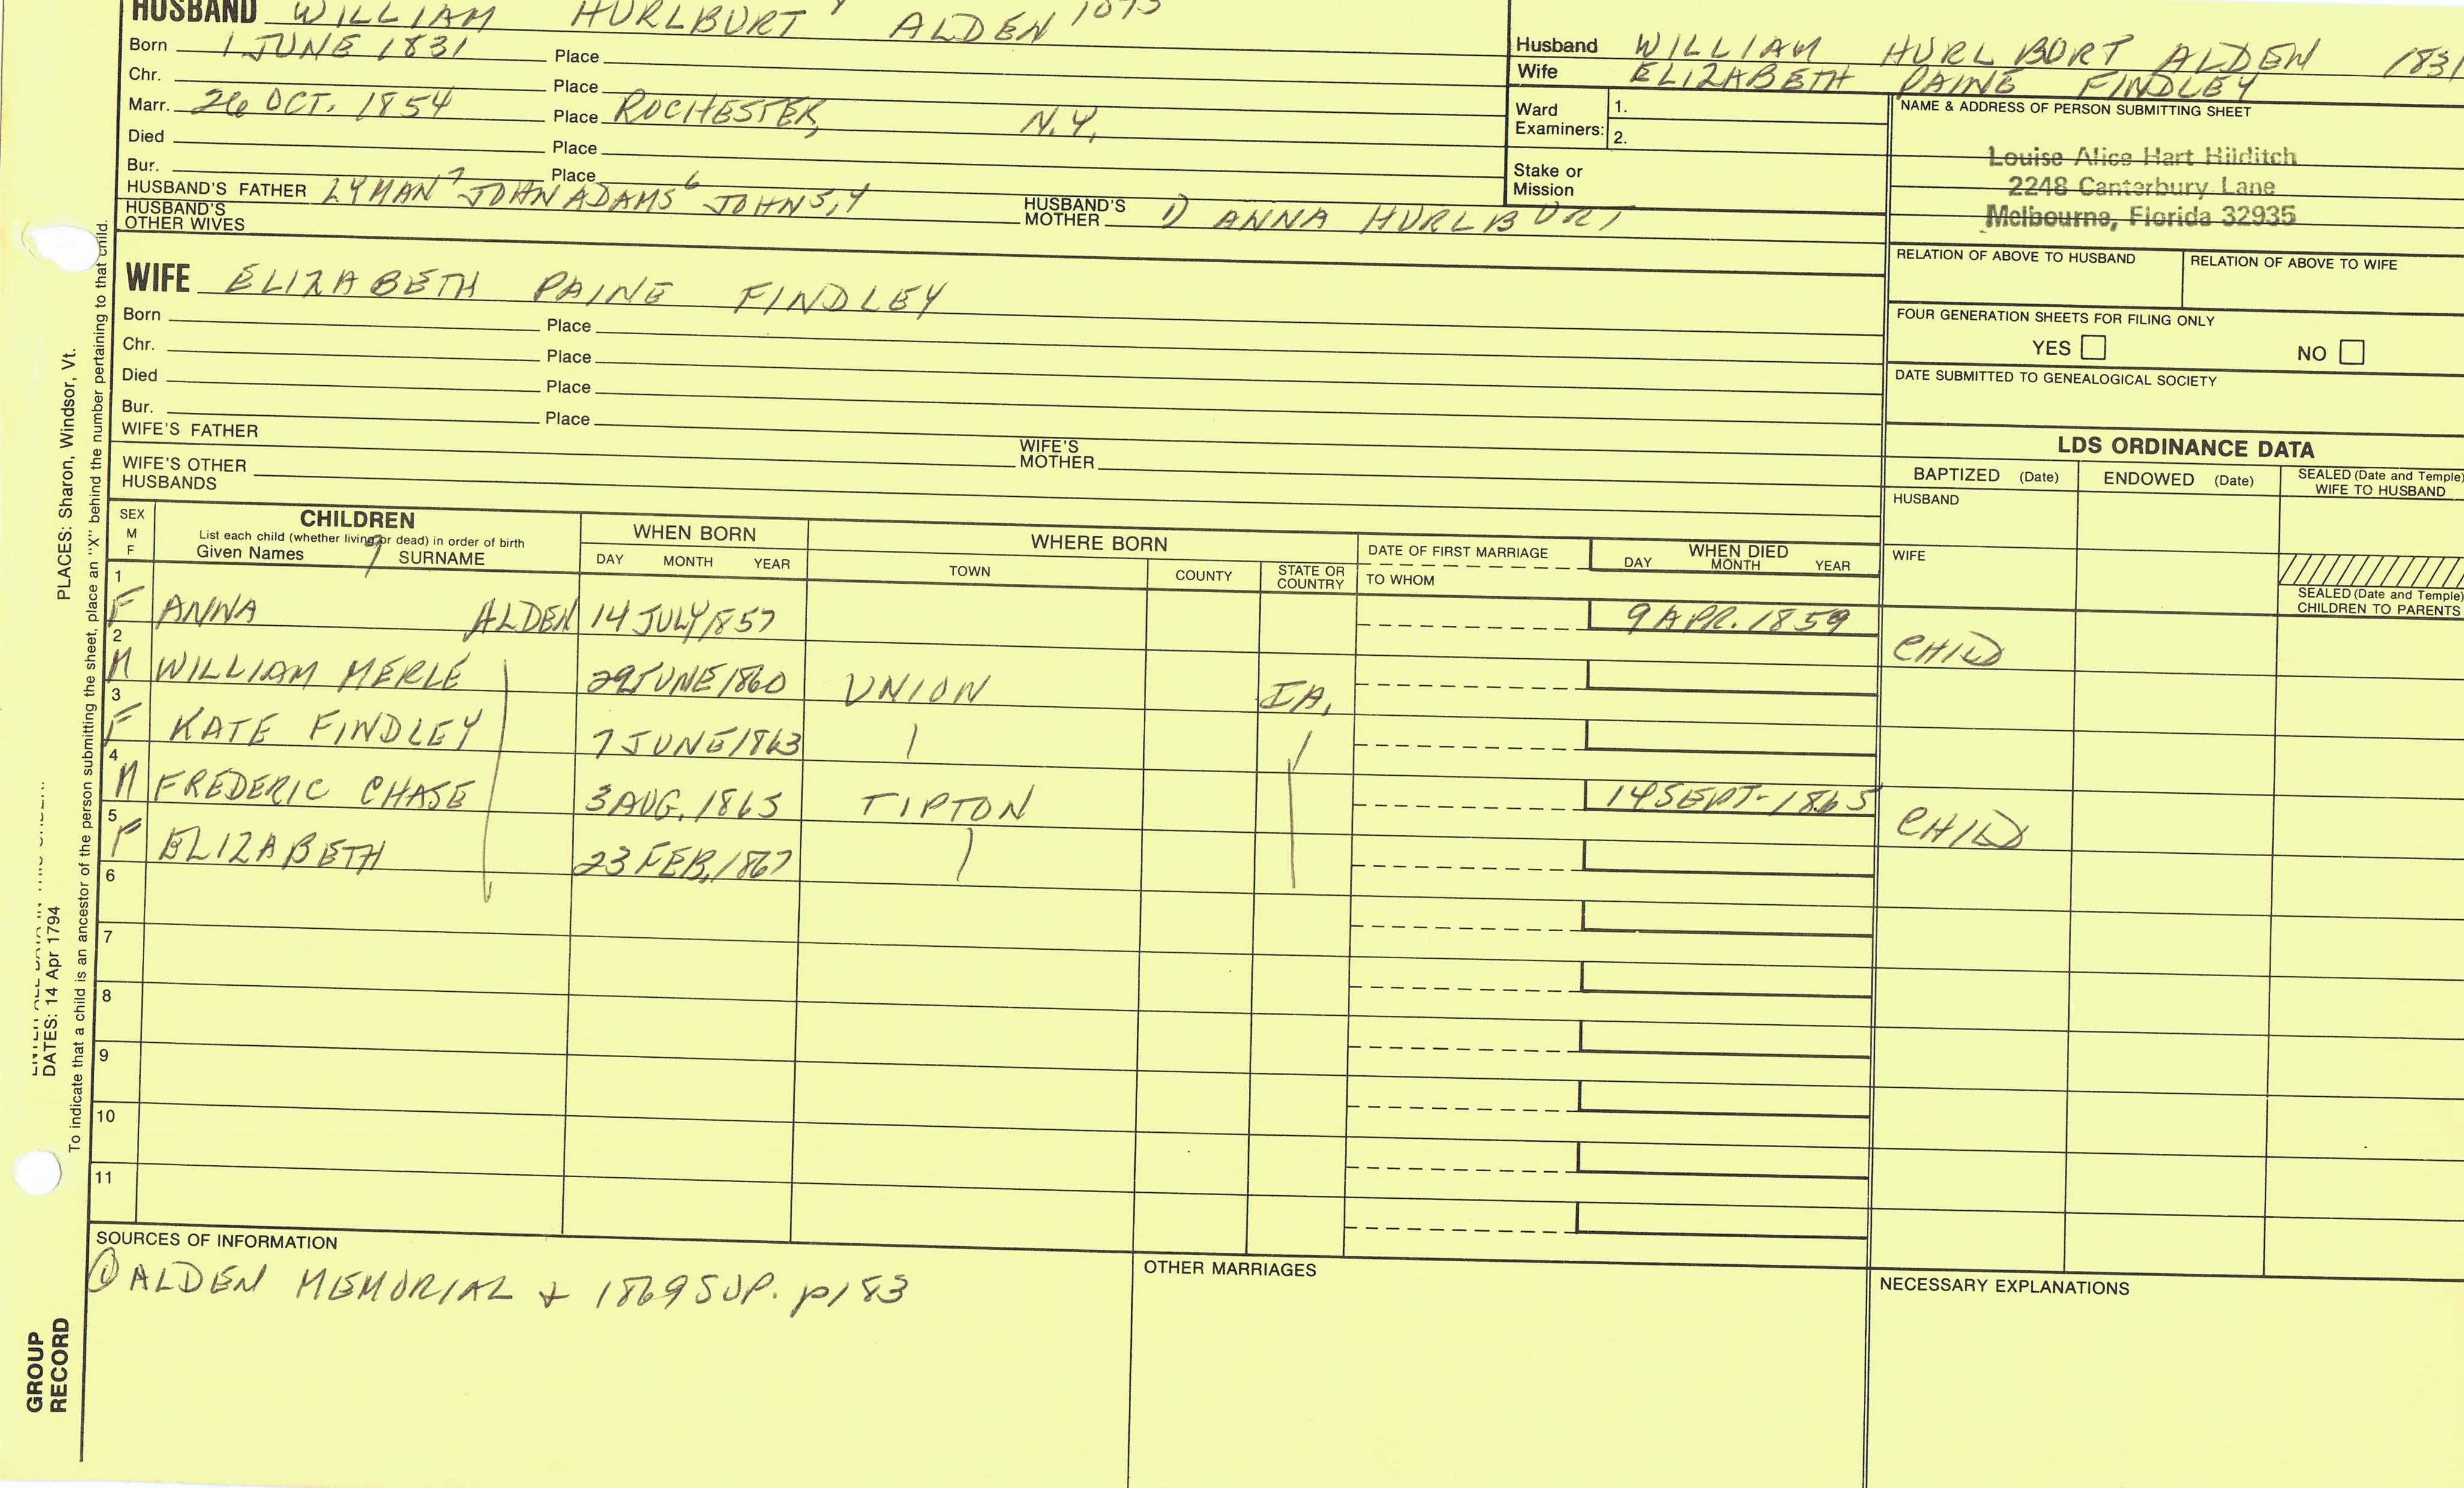 HUSBAND WILLIAM HURLBURT ALDEN
Born 1 JUNE 1831 Place
Chr. Place
Marr. 26 OCT. 1854 Place ROCHESTER, N.Y.
Died Place
Bur. Place
HUSBAND'S FATHER LYMAN7 JOHN ADAMS6 JOHN5,4 HUSBAND'S MOTHER 1) ANNA HURLBURT
HUSBAND'S OTHER WIVES
Husband WILLIAM HURLBURT ALDEN 1831
Wife ELIZABETH PAINE FINDLEY
Ward Examiners: 1.
2.
Stake or Mission
NAME & ADDRESS OF PERSON SUBMITTING SHEET
Louise Alice Hart Hilditch
2248 Canterbury Lane
Melbourne, Florida 32935
RELATION OF ABOVE TO HUSBAND RELATION OF ABOVE TO WIFE
FOUR GENERATION SHEETS FOR FILING ONLY
YES NO
DATE SUBMITTED TO GENEALOGICAL SOCIETY
WIFE ELIZABETH PAINE FINDLEY
Born Place
Chr. Place
Died Place
Bur. Place
WIFE'S FATHER WIFE'S MOTHER
WIFE'S OTHER HUSBANDS
LDS ORDINANCE DATA
BAPTIZED (Date) ENDOWED (Date) SEALED (Date and Temple) WIFE TO HUSBAND
HUSBAND
WIFE
SEALED (Date and Temple) CHILDREN TO PARENTS
SEX M F
CHILDREN
List each child (whether living or dead) in order of birth
Given Names 9 SURNAME
WHEN BORN
DAY MONTH YEAR
WHERE BORN
TOWN COUNTY STATE OR COUNTRY
DATE OF FIRST MARRIAGE
TO WHOM
WHEN DIED
DAY MONTH YEAR
1 F ANNA ALDEN 14 JULY 1857 9 APR. 1859 CHILD
2 M WILLIAM MERLE 29 JUNE 1860 UNION IA.
3 F KATE FINDLEY 7 JUNE 1863
4 M FREDERIC CHASE 3 AUG. 1865 TIPTON 14 SEPT. 1865 CHILD
5 F ELIZABETH 23 FEB. 1867
6
7
8
9
10
11
SOURCES OF INFORMATION
① ALDEN MEMORIAL + 1869 SUP. p183
OTHER MARRIAGES
NECESSARY EXPLANATIONS
PLACES: Sharon, Windsor, Vt.
DATES: 14 Apr 1794
To indicate that a child is an ancestor of the person submitting the sheet, place an "X" behind the number pertaining to that child.
GROUP
RECORD